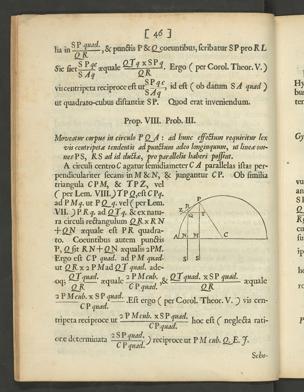 [ 46 ]
lia in SP quad. / QR, & punctis P & Q coeuntibus, scribatur SP pro RL
Sic fiet SP qc / SAq æquale QTq x SPq. / QR. Ergo (per Corol. Theor. V.)
vis centripeta reciproce est ut SPqc / SAq, id est (ob datum SA quad.)
ut quadrato-cubus distantiæ SP. Quod erat inveniendum.
Prop. VIII. Prob. III.
Moveatur corpus in circulo PQA: ad hunc effectum requiritur lex
vis centripetæ tendentis ad punctum adeo longinquum, ut lineæ om-
nes PS, RS ad id ductæ, pro parallelis haberi possint.
A circuli centro C agatur semidiameter CA parallelas istas per-
pendiculariter secans in M & N, & jungantur CP. Ob similia
triangula CPM, & TPZ, vel
(per Lem. VIII.) TPQ, est CPq.
ad PMq. ut PQq. vel (per Lem.
VII.) PRq. ad QTq. & ex natu-
ra circuli rectangulum QR x RN
+ QN æquale est PR quadra-
to. Coeuntibus autem punctis
P, Q fit RN + QN æqualis 2PM.
Ergo est CP quad. ad PM quad.
ut QR x 2PM ad QT quad. ade-
oq; QT quad. / QR æquale 2PM cub. / CP quad., & QT quad. x SP quad. / QR æquale
2PM cub. x SP quad. / CP quad. Est ergo (per Corol. Theor. V.) vis cen-
tripeta reciproce ut 2PM cub. x SP quad. / CP quad. hoc est (neglecta rati-
one determinata 2SP quad. / CP quad.) reciproce ut PM cub. Q. E. I.
Scho-